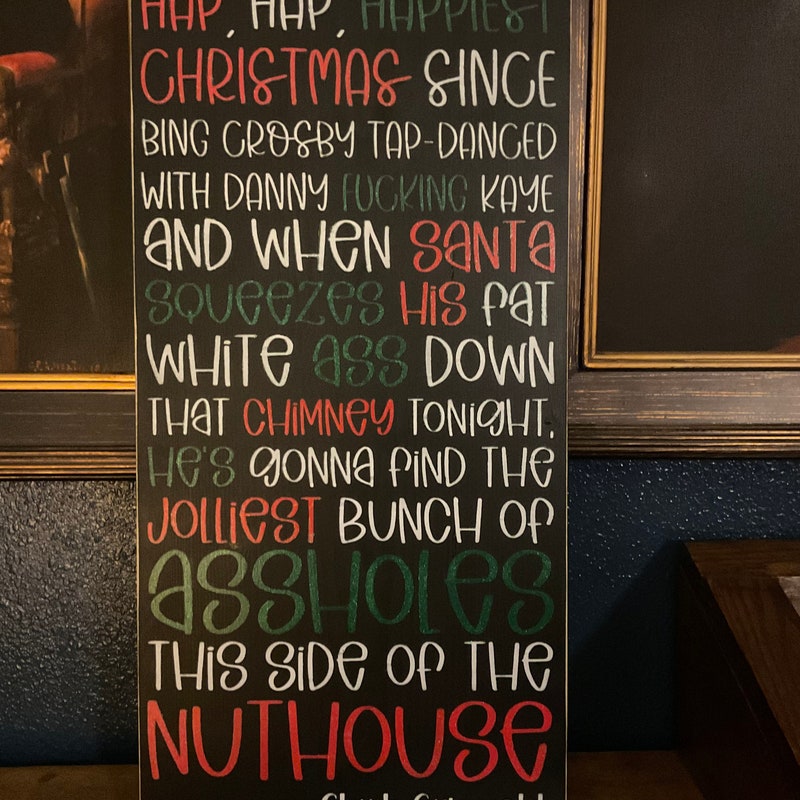 HAP, HAP, HAPPIEST
CHRISTMAS SINCE
BING CROSBY TAP-DANCED
WITH DANNY FUCKING KAYE
AND WHEN SANTA
SQUEEZES HIS FAT
WHITE ASS DOWN
THAT CHIMNEY TONIGHT,
HE'S GONNA FIND THE
JOLLIEST BUNCH OF
ASSHOLES
THIS SIDE OF THE
NUTHOUSE